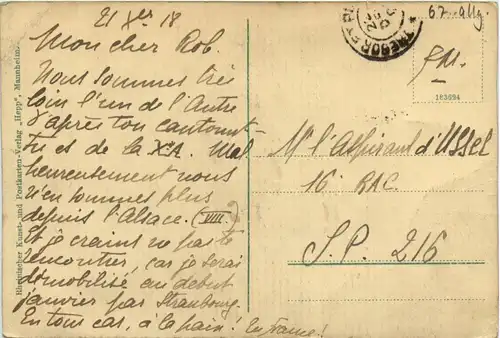 21 Xer 18
Mon cher Rob.
Nous sommes très
loin l'un de l'Autre
d'après ton cantonne-
et de la Xe A. Mal
heureusement nous
n'en sommes plus
depuis l'Alsace. (VIII)
Et je crains ne pas te
rencontrer car je serai
démobilisé au début
janvier par Strasbourg.
En tous cas, à la paix! En france!
TRESOR ET P
F.M.
163694
Mr l'Aspirant d'Ussel
16 RAC.
S.P. 216
Rheinischer Kunst- und Postkarten-Verlag „Hepp", Mannheim.